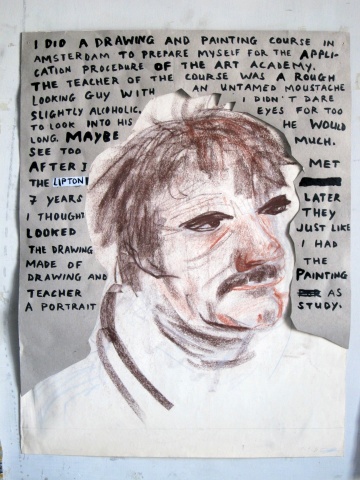 I DID A DRAWING AND PAINTING COURSE IN
AMSTERDAM TO PREPARE MYSELF FOR THE APPLI-
CATION PROCEDURE OF THE ART ACADEMY.
THE TEACHER OF THE COURSE WAS A ROUGH
LOOKING GUY WITH AN UNTAMED MOUSTACHE
SLIGHTLY ALCOHOLIC. I DIDN'T DARE
TO LOOK INTO HIS EYES FOR TOO
LONG. MAYBE HE WOULD
SEE TOO MUCH.
AFTER I MET
THE LIPTON
7 YEARS LATER
I THOUGHT THEY
LOOKED JUST LIKE
THE DRAWING I HAD
MADE OF THE
DRAWING AND PAINTING
TEACHER AS
A PORTRAIT STUDY.